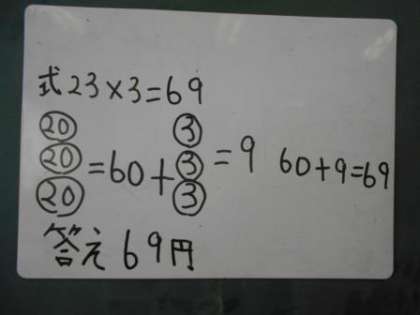 式23×3=69
20 3
20=60+3=9 60+9=69
20 3
答え69円